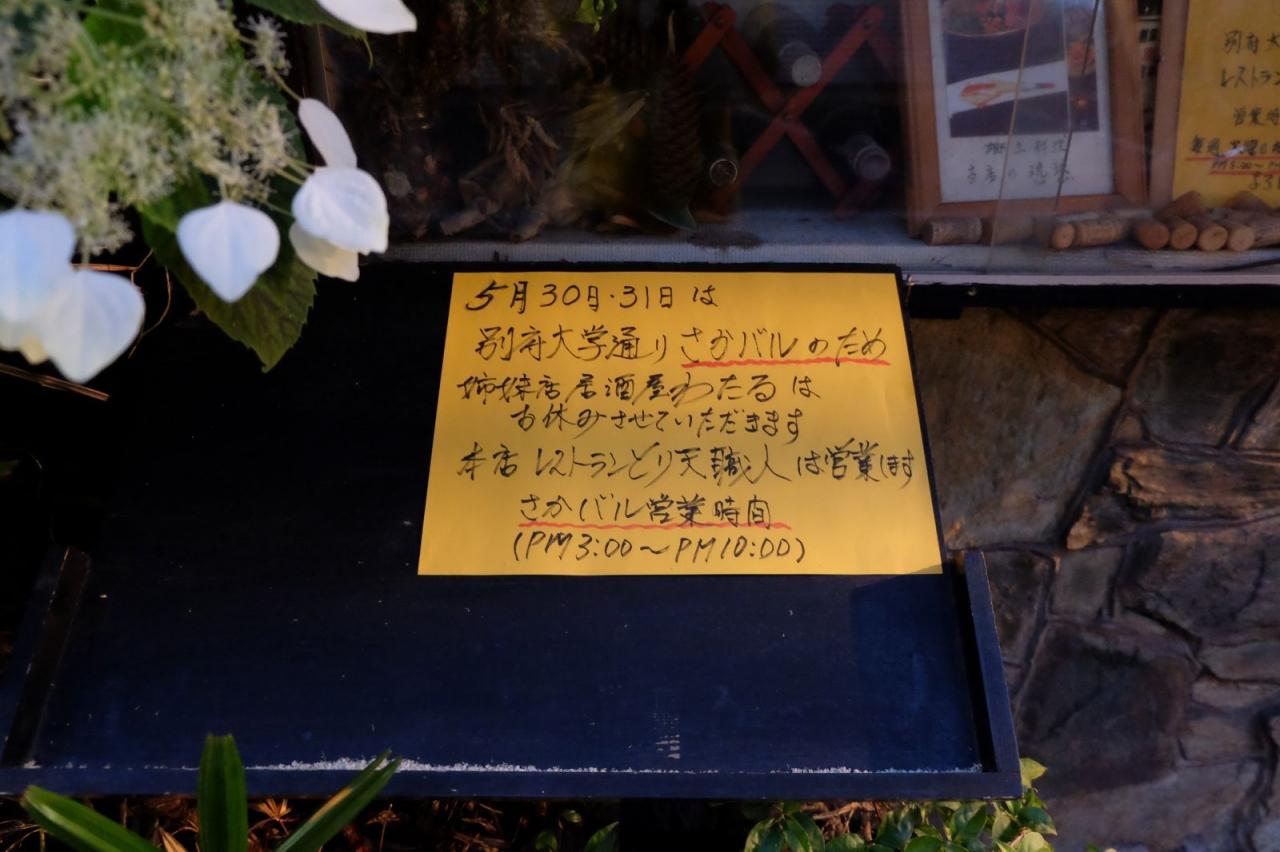 5月30日・31日は
別府大学通りさかバルのため
姉妹店居酒屋わたるは
お休みさせていただきます
本店レストランとり天職人は営業します
さかバル営業時間
(PM3:00～PM10:00)
郷土料理
別府大
レストラン
営業時